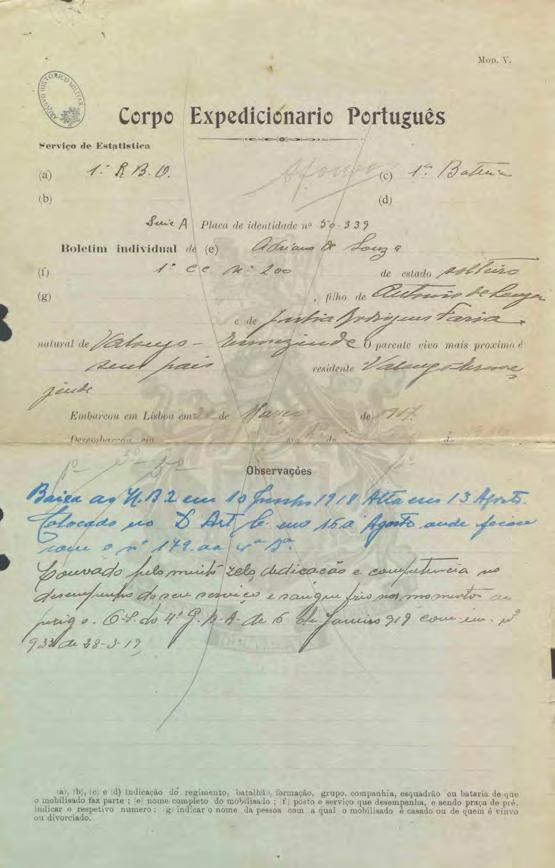 Mod. V.
ARQUIVO HISTÓRICO MILITAR
Corpo Expedicionario Português
Serviço de Estatistica
(a) 1º R. B. (c) 1ª Bateria
(b) (d)
Serie A Placa de identidade nº 50-339
Boletim individual de (e) Adriano de Souza
(f) 1º c c nº 200 de estado solteiro
(g) , filho de Antonio de Souza
e de Rodrigues Faria
natural de Valongo - Ermezinde O parente vivo mais proximo é
seus pais residente Valongo Erme
zinde
Embarcou em Lisboa em de Março de 1917
Desembarcou em em de de
Observações
Baixa ao H. B. 2 em 10 Junho 1918 Alta em 13 Agosto.
Colocado no D Art em 16 a Agosto onde ficou
com o nº 149 da Bª
Louvado pelo muito zelo, dedicação e competencia no
desempenho do seu serviço e sangue frio nos momentos de
perigo. O. S. do 4º G. B. A. de 16 de Janeiro 919 nº
933 de 28-3-19
(a), (b), (c) e (d) indicação do regimento, batalhão, formação, grupo, companhia, esquadrão ou bataria de que
o mobilisado faz parte ; (e) nome completo do mobilisado ; (f) posto e serviço que desempenha, e sendo praça de pré,
indicar o respetivo numero ; (g) indicar o nome da pessoa com a qual o mobilisado é casado ou de quem é viuvo
ou divorciado.